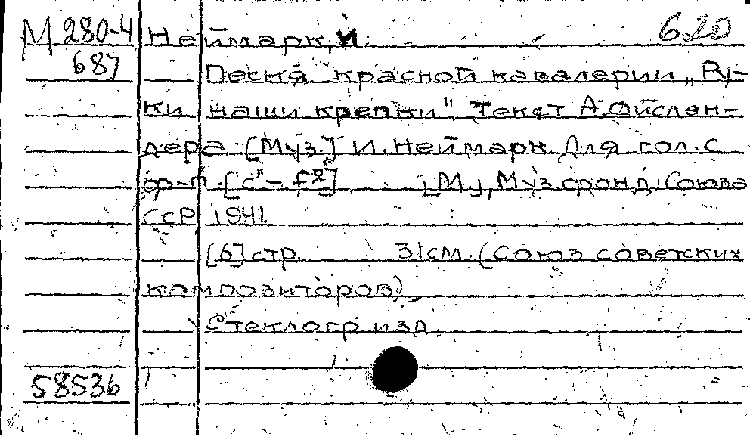 М 280-4 Неймарк, И. 620
687 Песня красной кавалерии "Ру-
ки наши крепки" Текст А. Ойслен-
дера [Муз.] И. Неймарк Для гол. с
ф-п. [c" – f²] [М], Муз фонд Союза
ССР 1941
[6] стр 31 см. (Союз советских
композиторов)
Стеклогр изд.
58536